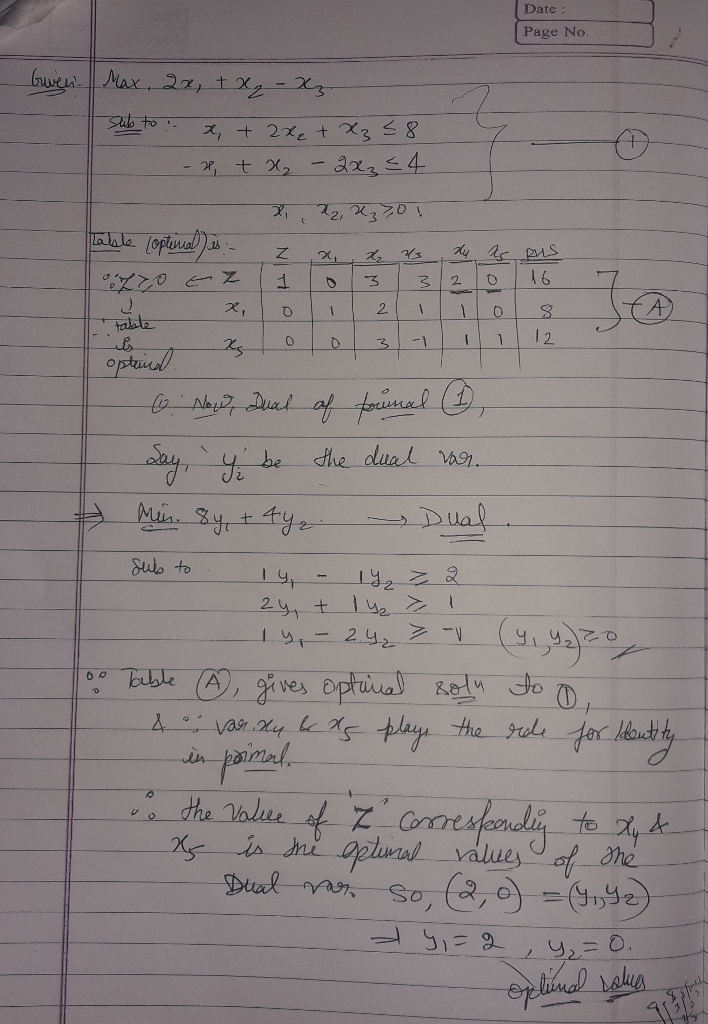 Date :
Page No.
Given:- Max, 2x₁ + x₂ - x₃
Sub to :- x₁ + 2x₂ + x₃ ≤ 8
①
- x₁ + x₂ - 2x₃ ≤ 4
x₁, x₂, x₃ ≥ 0
Table (optimal) is :-
Z x₁ x₂ x₃ x₄ x₅ RHS
∵ Z ≥ 0 ← Z 1 0 3 3 2 0 16
x₁ 0 1 2 1 1 0 8 Ⓐ
∴ table
is x₅ 0 0 3 -1 1 1 12
optimal
Now, Dual of primal ①,
Say, 'yᵢ' be the dual var.
⇒ Min. 8y₁ + 4y₂ → Dual.
Sub to 1y₁ - 1y₂ ≥ 2
2y₁ + 1y₂ ≥ 1
1y₁ - 2y₂ ≥ -1 (y₁, y₂) ≥ 0
∵ Table Ⓐ, gives optimal soln to ①,
& ∵ var. x₄ & x₅ plays the role for Identity
in primal.
∴ the value of 'Z' corresponding to x₄ &
x₅ is the optimal values of the
Dual var. So, (2, 0) = (y₁, y₂)
⇒ y₁ = 2, y₂ = 0.
optimal values